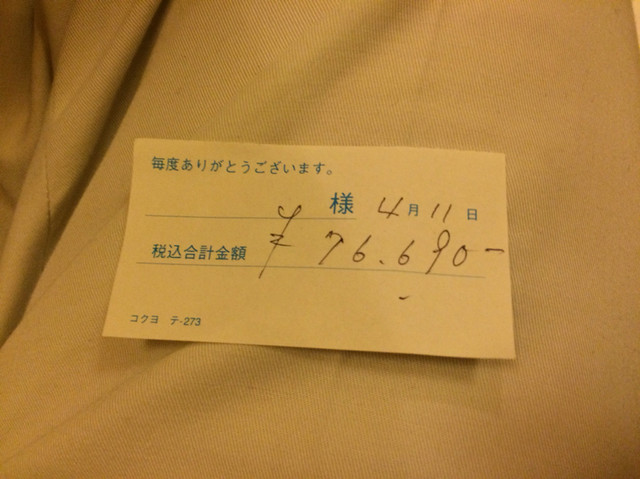 毎度ありがとうございます。
様 4月11日
税込合計金額 ¥76.690-
コクヨ テ-273